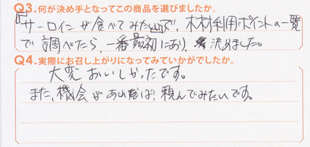 Q3.何が決め手となってこの商品を選びましたか。
サーロインが食べてみたかったので、木材利用ポイントの一覧
で調べたら、一番最初にあり、決めました。
Q4.実際にお召し上がりになってみていかがでしたか。
大変おいしかったです。
また、機会があれば、頼んでみたいです。